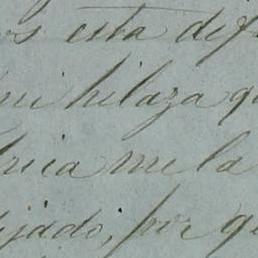 os esta def
mi hilaza q
brica me la
ijado, por q